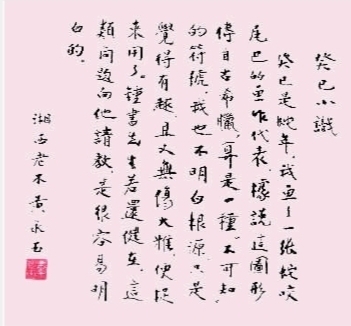 癸巳小識
癸巳是蛇年，我画了一張蛇咬
尾巴的画作代表，據說這圖形
傳自古希臘，算是一種"不可知"
的符號，我也不明白根源，只是
覺得有趣，且又無傷大雅，便捉
來用了。鐘書先生若還健在，這
類問題向他請教，是很容易明
白的。
湘西老木黃永玉